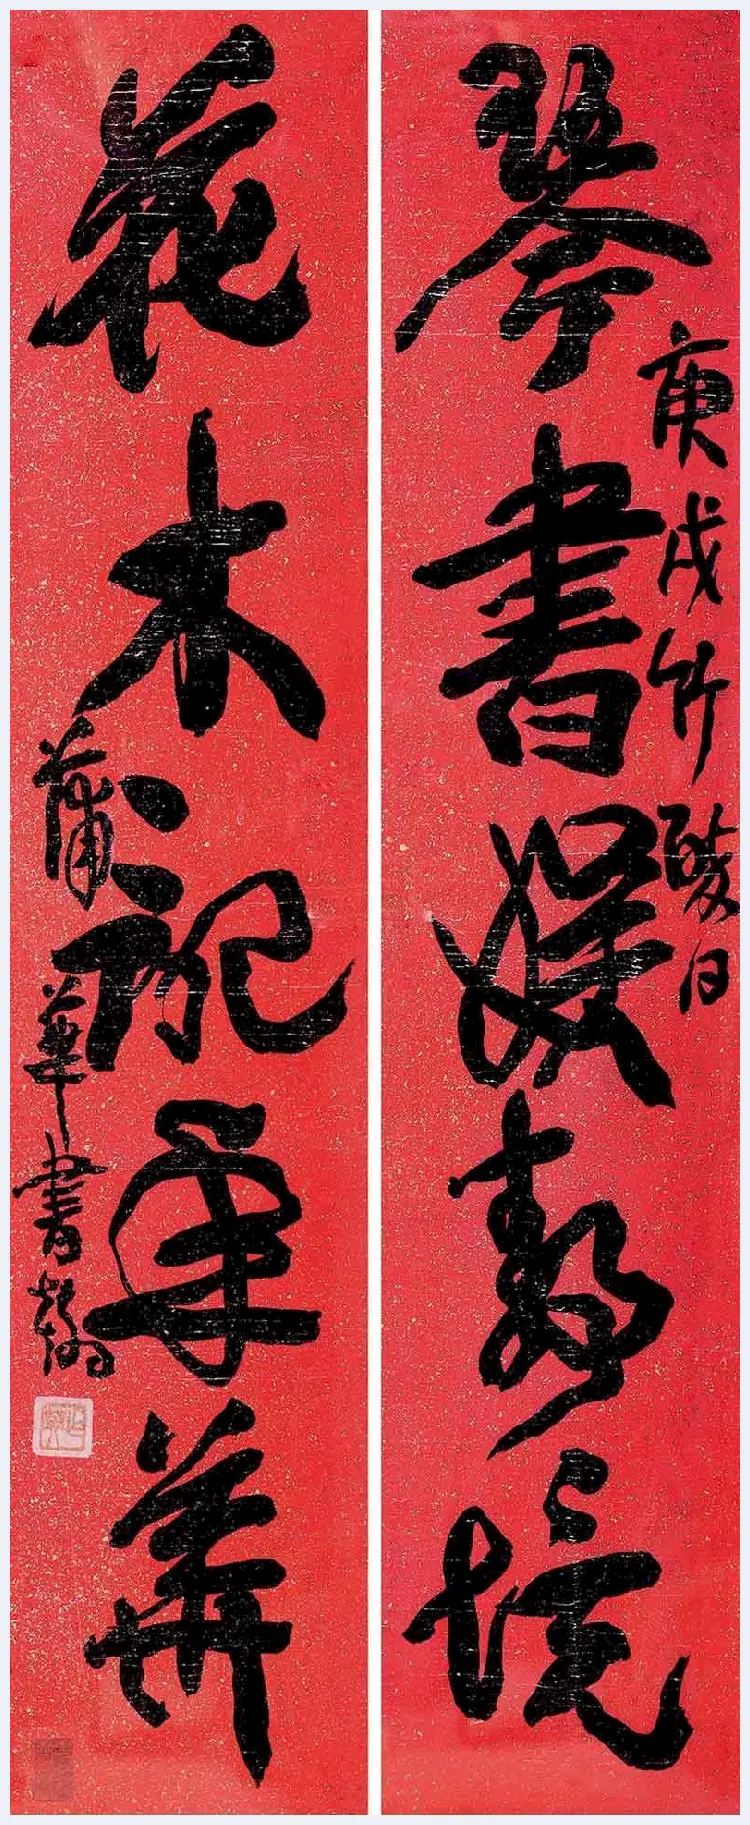 琴書娛静境
庚戌竹醉日
花木記年華
蒲華書